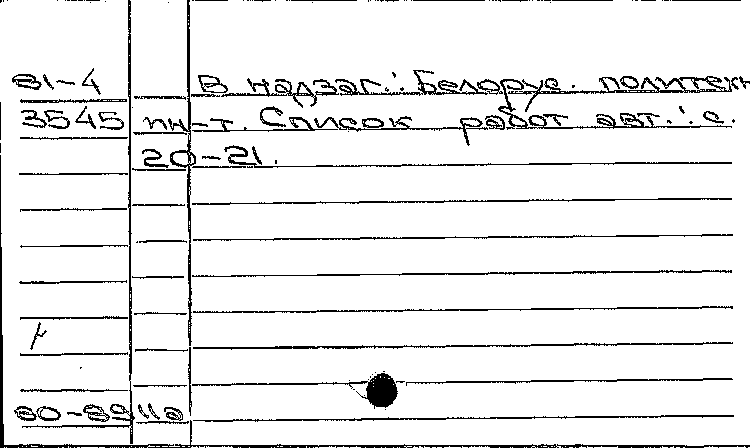 81-4 В надзаг.: Белорус. политехн
3545 ин-т. Список работ авт.: с.
20-21.
80-8911а